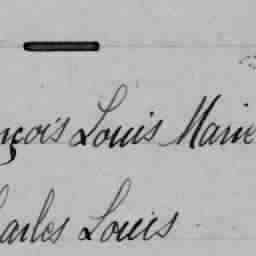 nçois Louis Marie
harles Louis